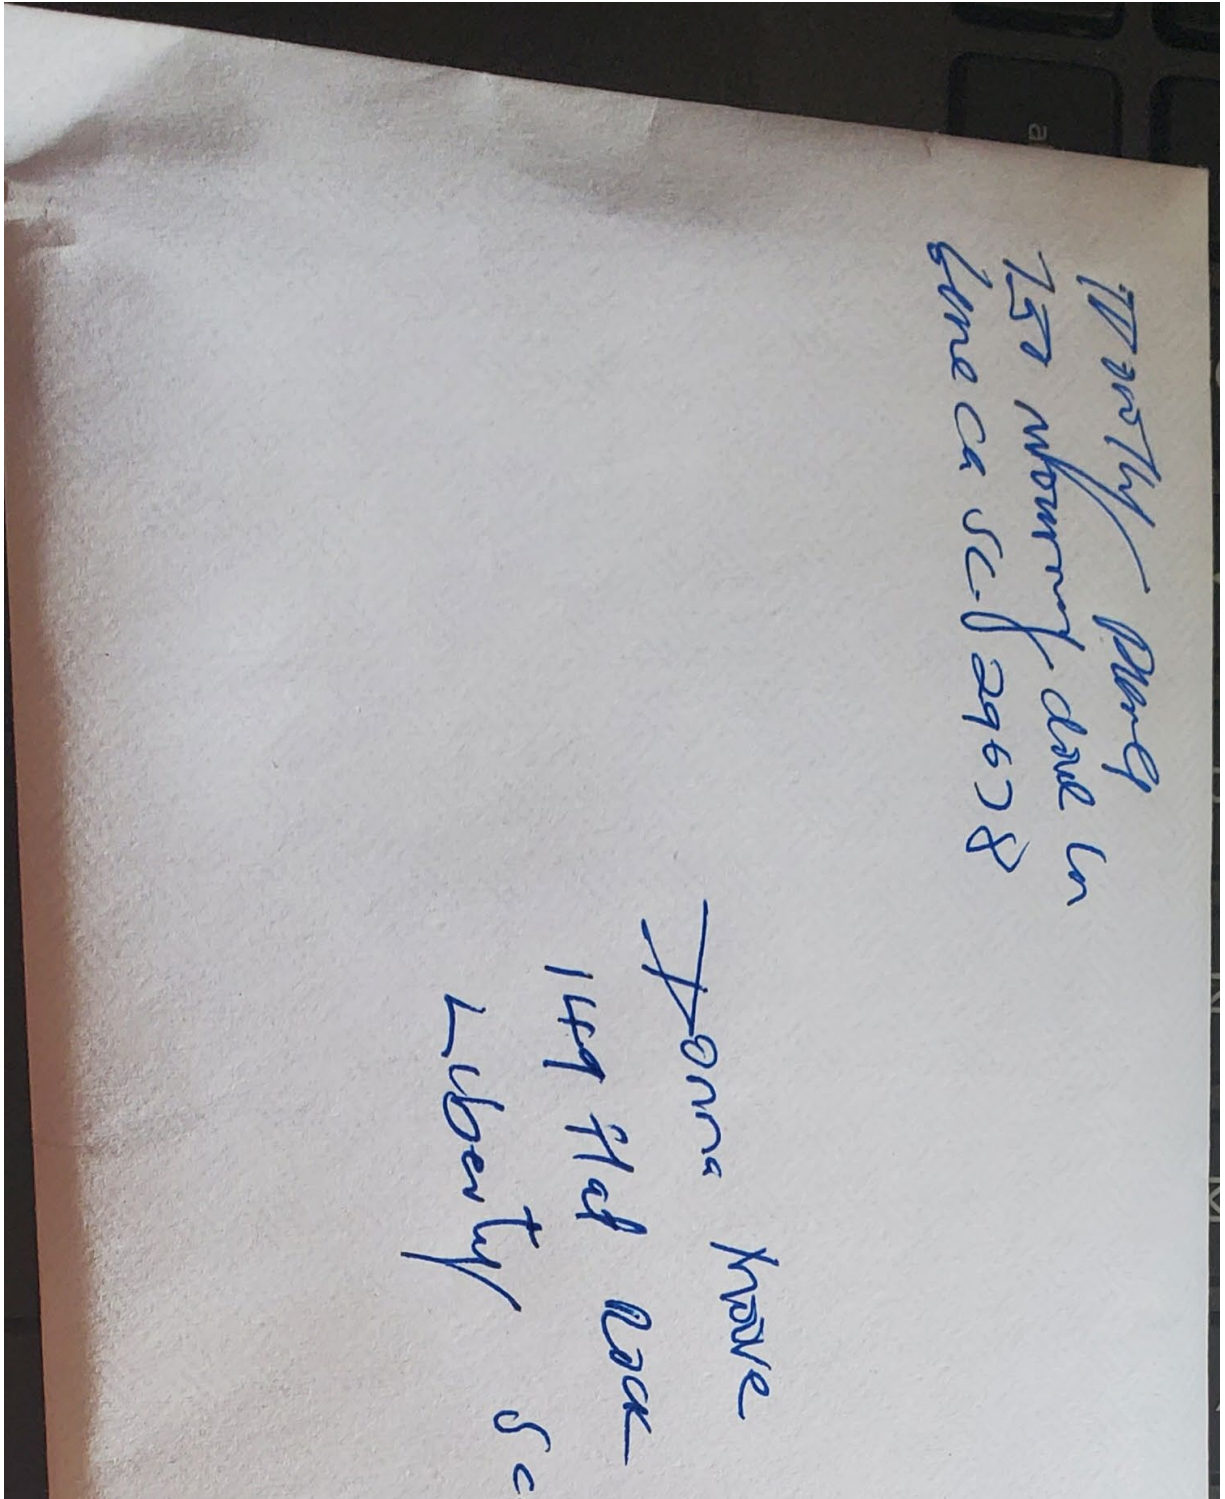 Dorothy
750 mourning dove Ln
Seneca SC. 29678
Donna Moore
149 Flat Rock
Liberty Sc